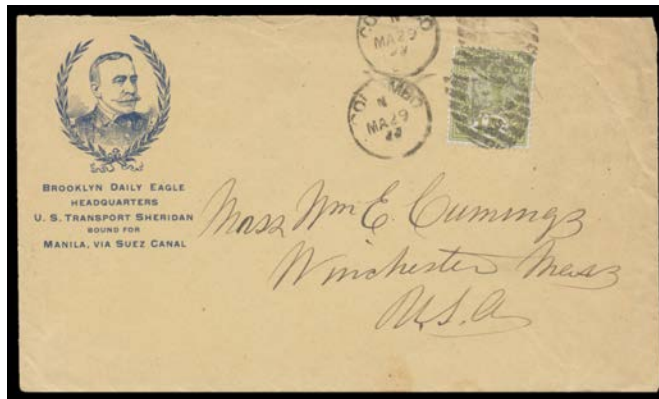 COLOMBO
N
MA 29
99
COLOMBO
N
MA 29
99
BROOKLYN DAILY EAGLE
HEADQUARTERS
U. S. TRANSPORT SHERIDAN
BOUND FOR
MANILA, VIA SUEZ CANAL
Wm E. Cummings
Winchester Mass
U.S.A